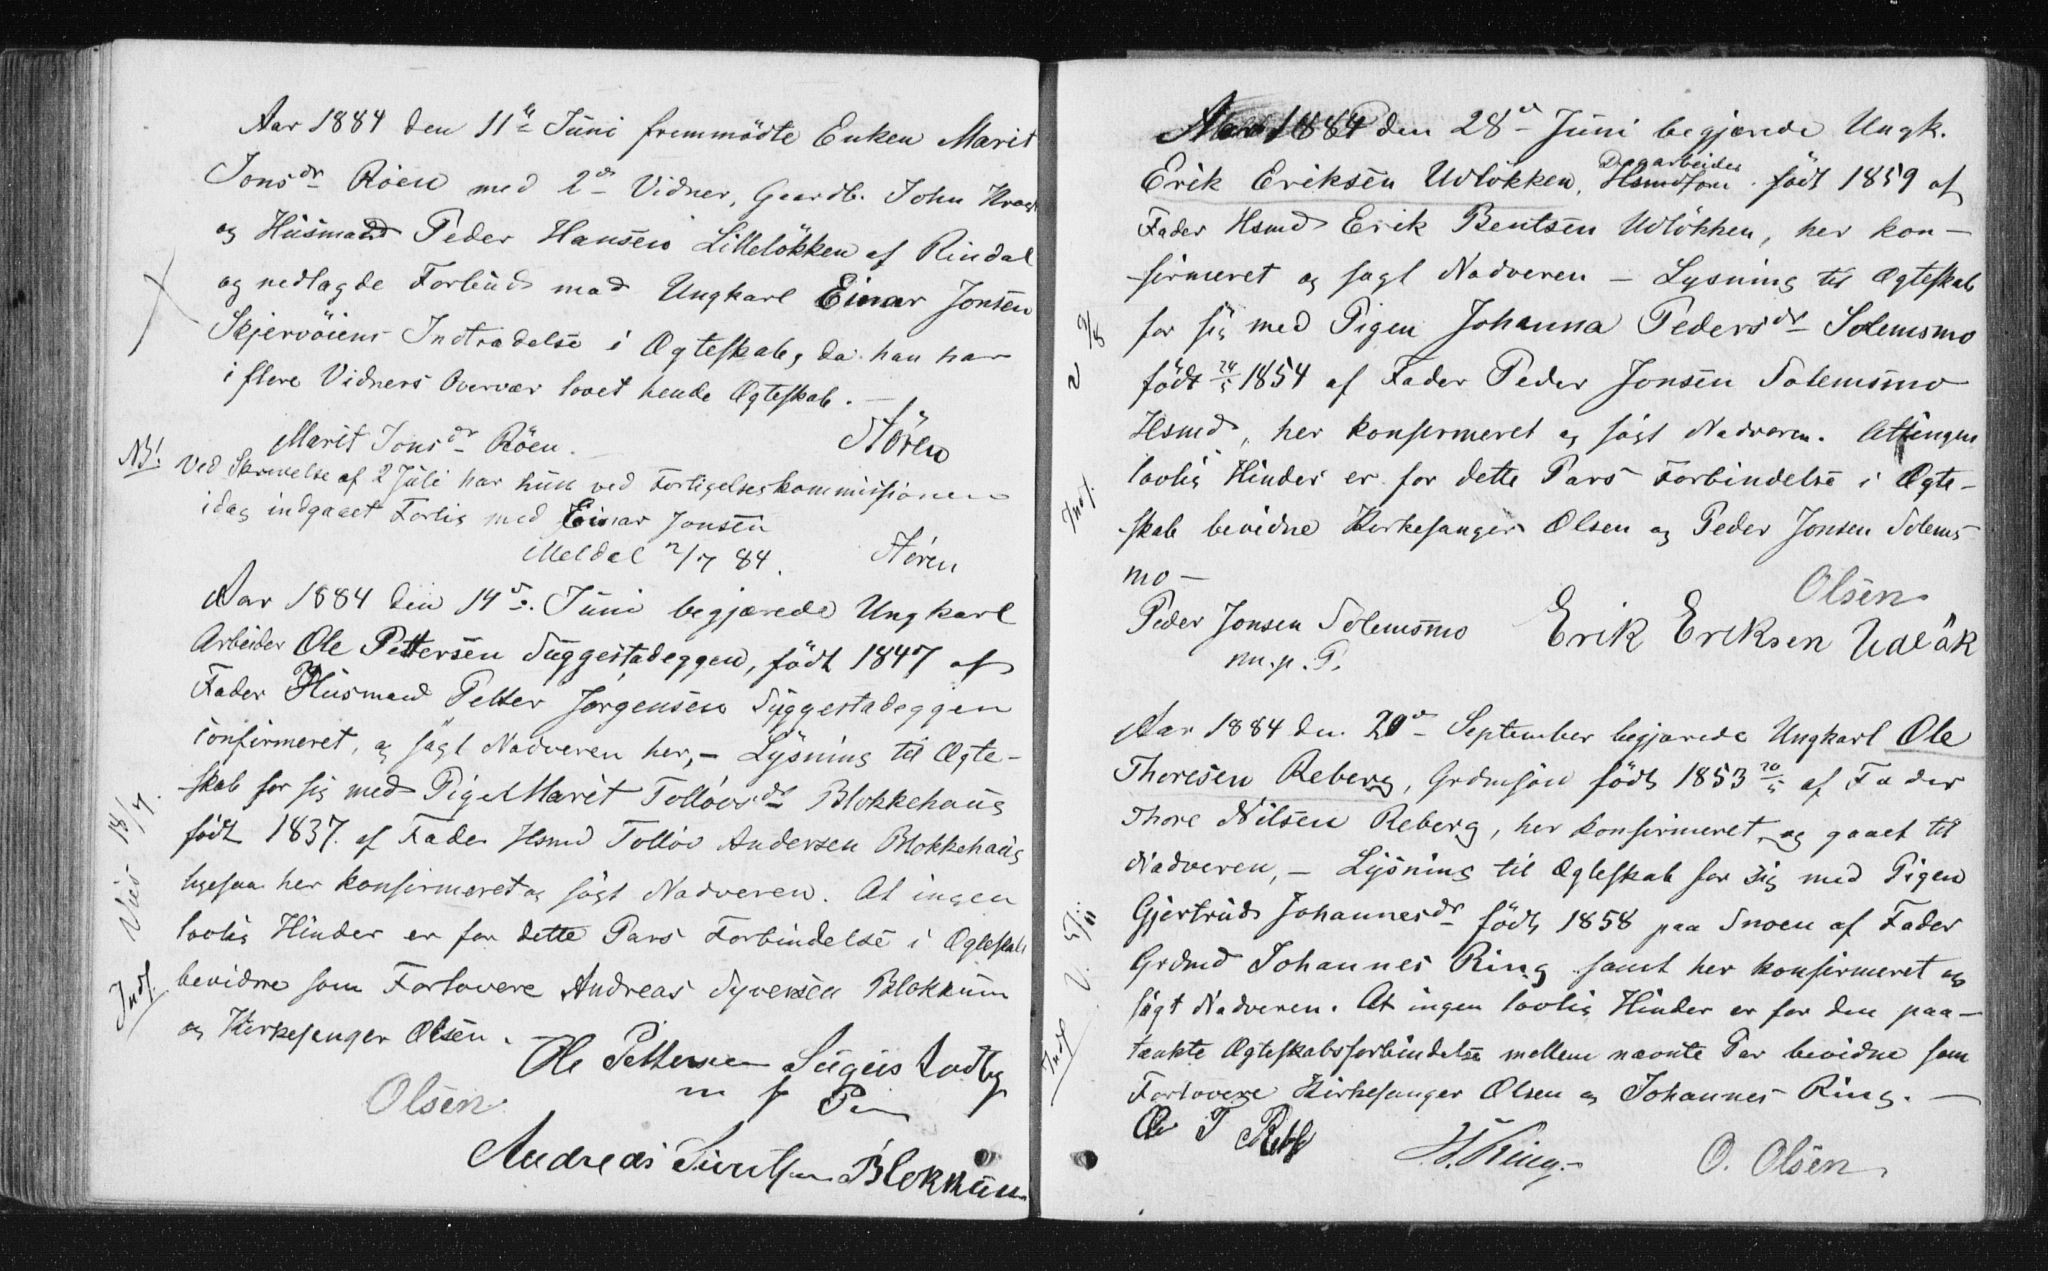 Aar 1884 den 11te Juni fremmödte Enken Marit
Jonsdr Röen med 2de Vidner, Gaardb. John
og Husmand Peder Hansen Lillelökken af Rindal
og nedlagde Forbud mod Ungkarl Einar Jonsen
Skjervöiens Indtrædelse i Ægteskab, da han har
i flere Vidners Overvær lovet hende Ægteskab. —
Marit Jonsdr Röen. Stören
NB! Ved Skrivelse af 2 Juli har hun ved Forligelseskommissionen
idag indgaaet Forlig med Einar Jonsen
Meldal 2/7 84. Stören
Aar 1884 den 14de Juni begjærede Ungkarl
Arbeider Ole Pettersen Suggestadeggen, födt 1847 af
Fader Husmand Petter Jørgensen Suggestadeggen
confirmeret, og sögt Nadveren her, – Lysning til Ægte-
skab for sig med Pige Marit Tollövsdr Blokkehaug
födt 1837 af Fader Hsmd Tollöv Andersen Blokkehaug
ligesaa her konfirmeret og sögt Nadveren. At ingen
lovlig Hinder er for dette Pars Forbindelse i Ægteskab
bevidne som Forlovere Andreas Syversen Blokkum
og Kirkesanger Olsen.
Ole Pettersen
m f P
Olsen
Andreas Blokkum
Indf. Viet 18/7.
Aar 1884 den 28de Juni begjærede Ungk.
Dagarbeider
Erik Eriksen Udlökken, Hsmdsøn födt 1859 af
Fader Hsmd Erik Bentsen Udlökken, her kon-
firmeret og sögt Nadveren – Lysning til Ægteskab
for sig med Pigen Johanna Pedersdr Solemsmo
födt 24/5 1854 af Fader Peder Jonsen Solemsmo
Hsmd, her konfirmeret og sögt Nadveren. At ingen
lovlig Hinder er for dette Pars Forbindelse i Ægte-
skab bevidne Kirkesanger Olsen og Peder Jonsen Solems-
mo – Olsen
Peder Jonsen Solemsmo Erik Eriksen Udlök
m. p. P.
Indf. v 9/8
Aar 1884 den 20de September begjærede Ungkarl Ole
Thoresen Reberg, Grdmsön födt 1853 20/5 af Fader
Thore Nilsen Reberg, her konfirmeret og gaaet til
Nadveren, – Lysning til Ægteskab for sig med Pigen
Gjertrud Johannesdr födt 1858 paa Snoen af Fader
Grdmd Johannes Ring samt her konfirmeret og
sögt Nadveren. At ingen lovlig Hinder er for den paa-
tænkte Ægteskabsforbindelse mellem nævnte Par bevidne som
Forlovere Kirkesanger Olsen og Johannes Ring. —
Ole T Ring. O. Olsen
Indf V. 5/11